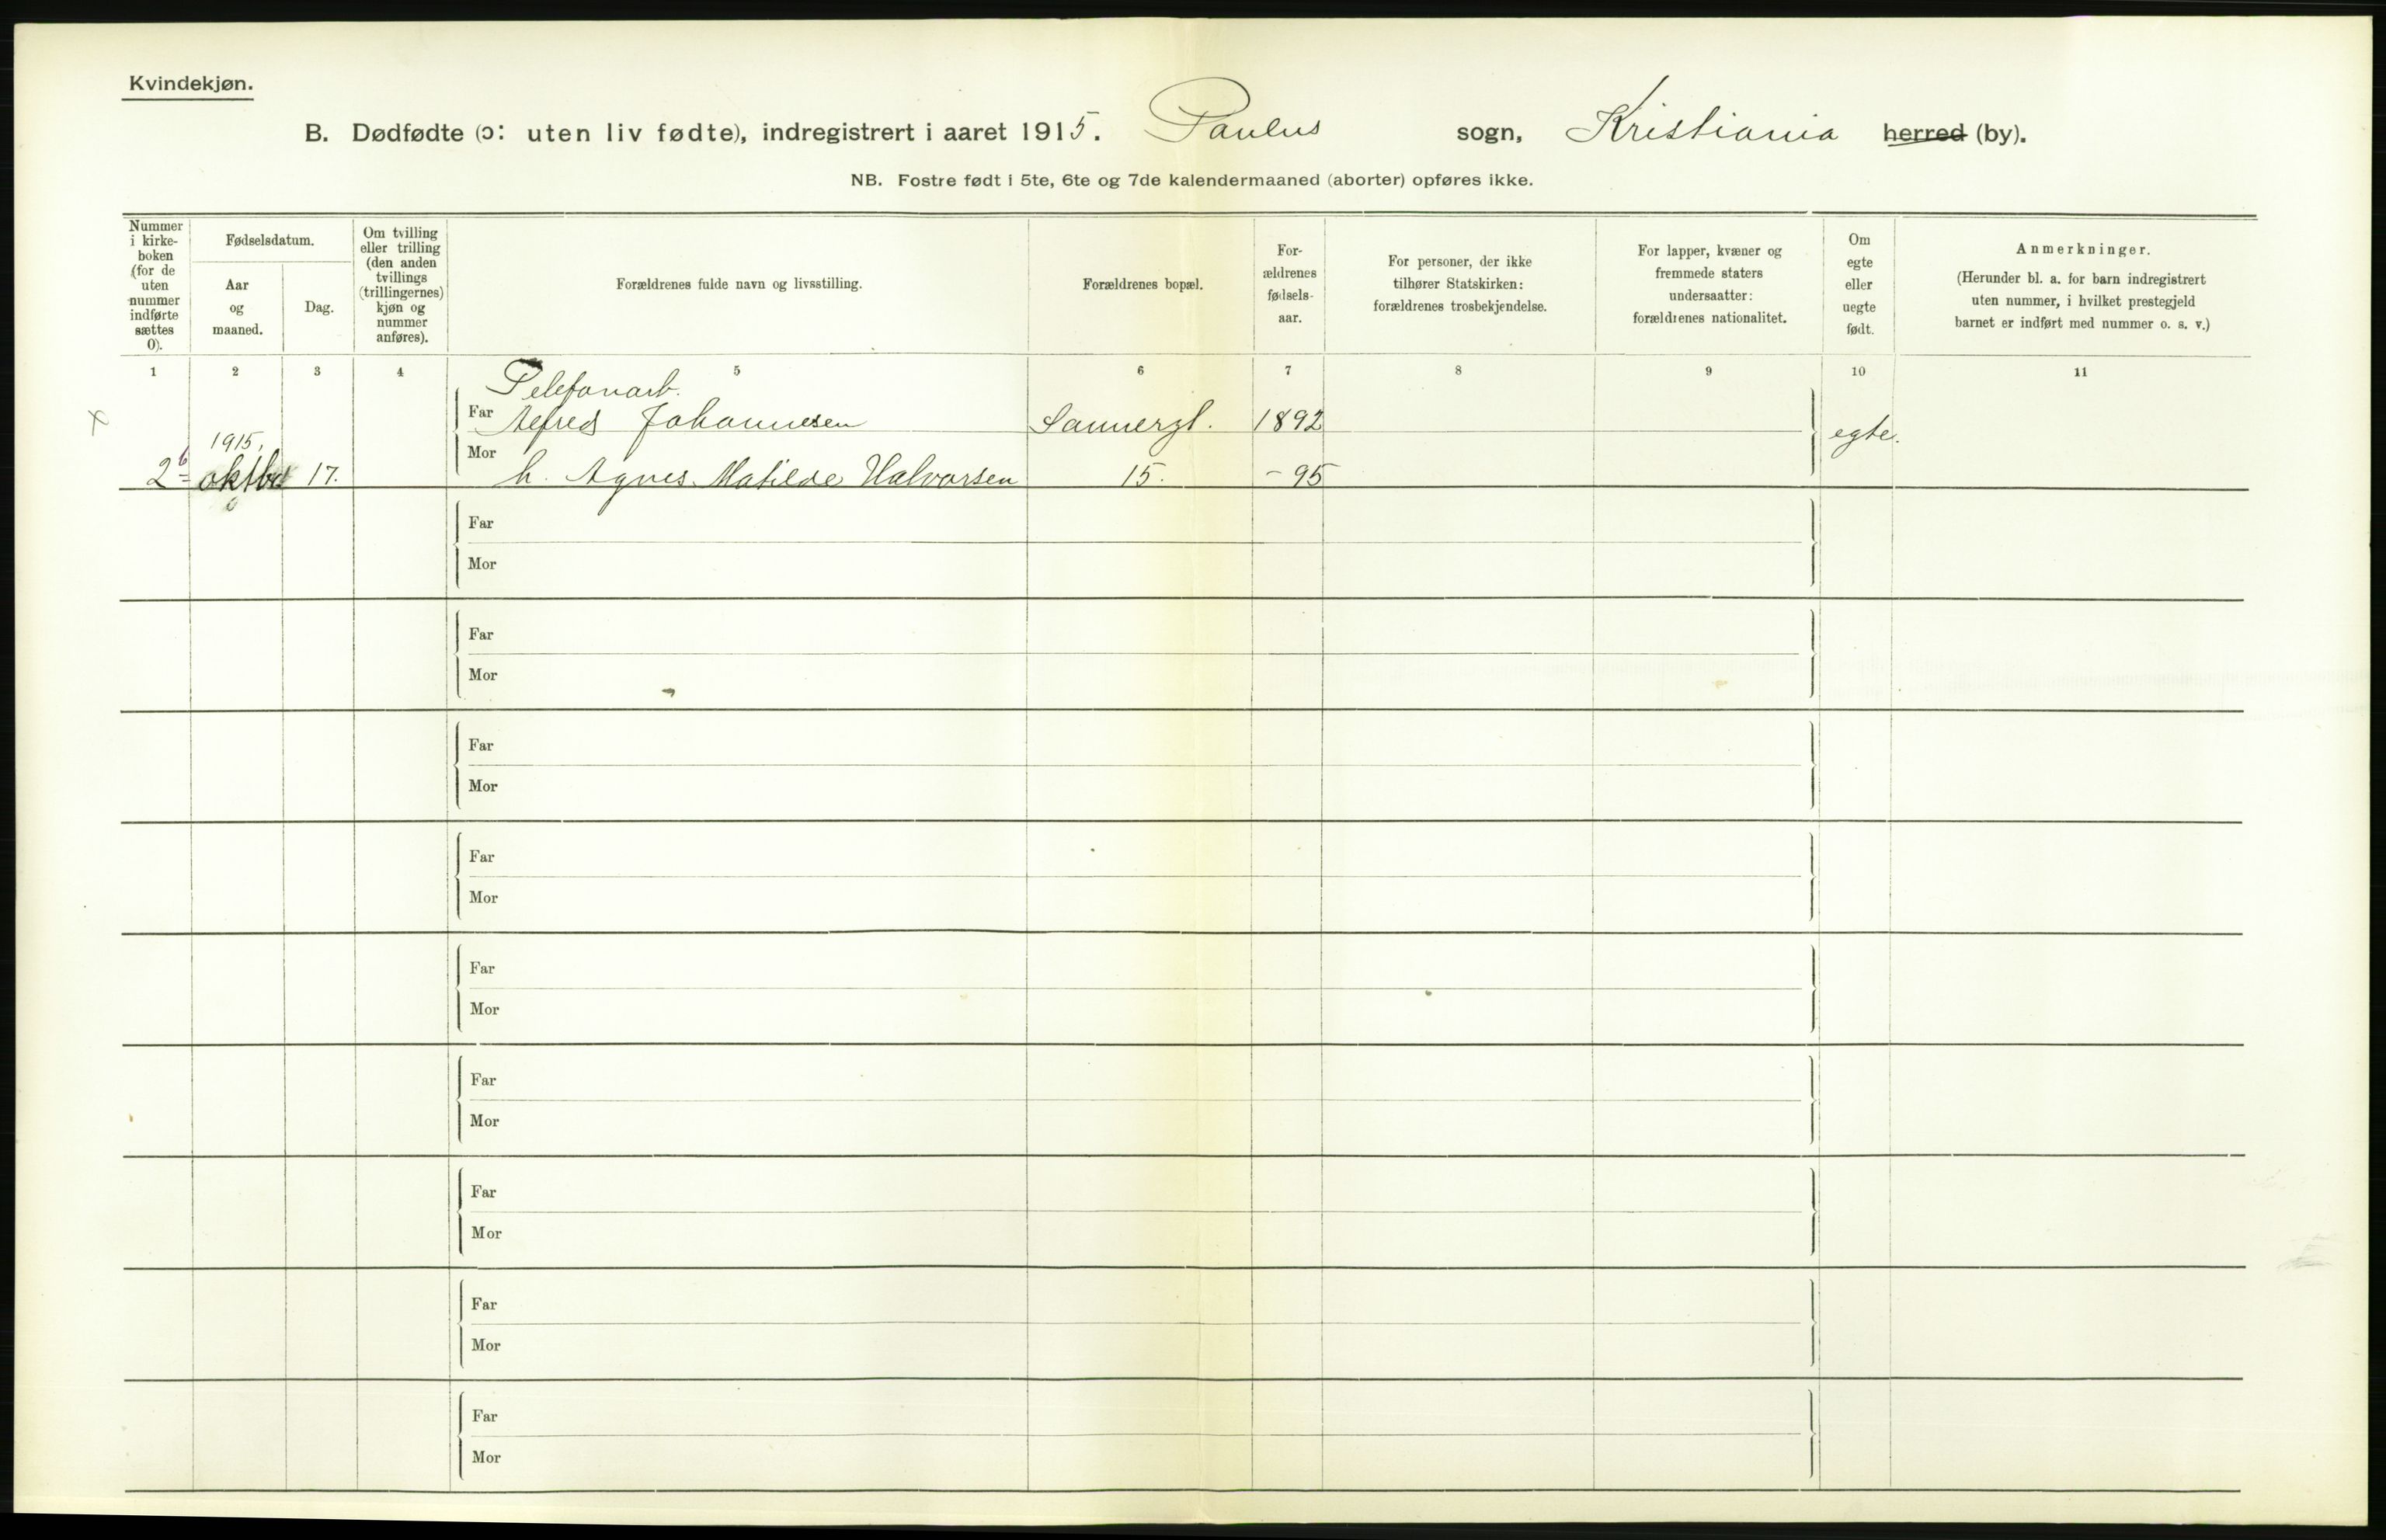 Kvindekjøn.
B. Dødfødte (ɔ: uten liv fødte), indregistrert i aaret 1915. Paulus sogn, Kristiania herred (by).
NB. Fostre født i 5te, 6te og 7de kalendermaaned (aborter) opføres ikke.
Nummer i kirke-boken (for de uten nummer indførte sættes 0).
Fødselsdatum.
Aar og maaned.
Dag.
Om tvilling eller trilling (den anden tvillings (trillingernes) kjøn og nummer anføres).
Forældrenes fulde navn og livsstilling.
Forældrenes bopæl.
For-ældrenes fødsels-aar.
For personer, der ikke tilhører Statskirken: forældrenes trosbekjendelse.
For lapper, kvæner og fremmede staters undersaatter: forældrenes nationalitet.
Om egte eller uegte født.
Anmerkninger.
(Herunder bl. a. for barn indregistrert uten nummer, i hvilket prestegjeld barnet er indført med nummer o. s. v.)
1 2 3 4 5 6 7 8 9 10 11
Telefonarb.
Far Alfred Johannesen Sannergt. 1892
x 1915. egte.
Mor
2 b oktbr 17. h. Agnes Matilde Halvorsen 15. - 95
Far
Mor
Far
Mor
Far
Mor
Far
Mor
Far
Mor
Far
Mor
Far
Mor
Far
Mor
Far
Mor